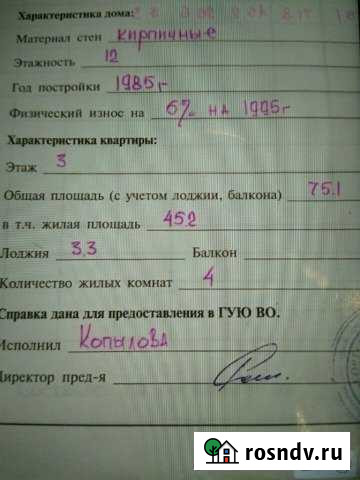 Характеристика дома:
Материал стен кирпичные
Этажность 12
Год постройки 1985г
Физический износ на 6% на 1995г
Характеристика квартиры:
Этаж 3
Общая площадь (с учетом лоджии, балкона) 75.1
в т.ч. жилая площадь 45.2
Лоджия 3.3 Балкон
Количество жилых комнат 4
Справка дана для предоставления в ГУЮ ВО.
Исполнил Копылова
Директор пред-я
rosndv.ru